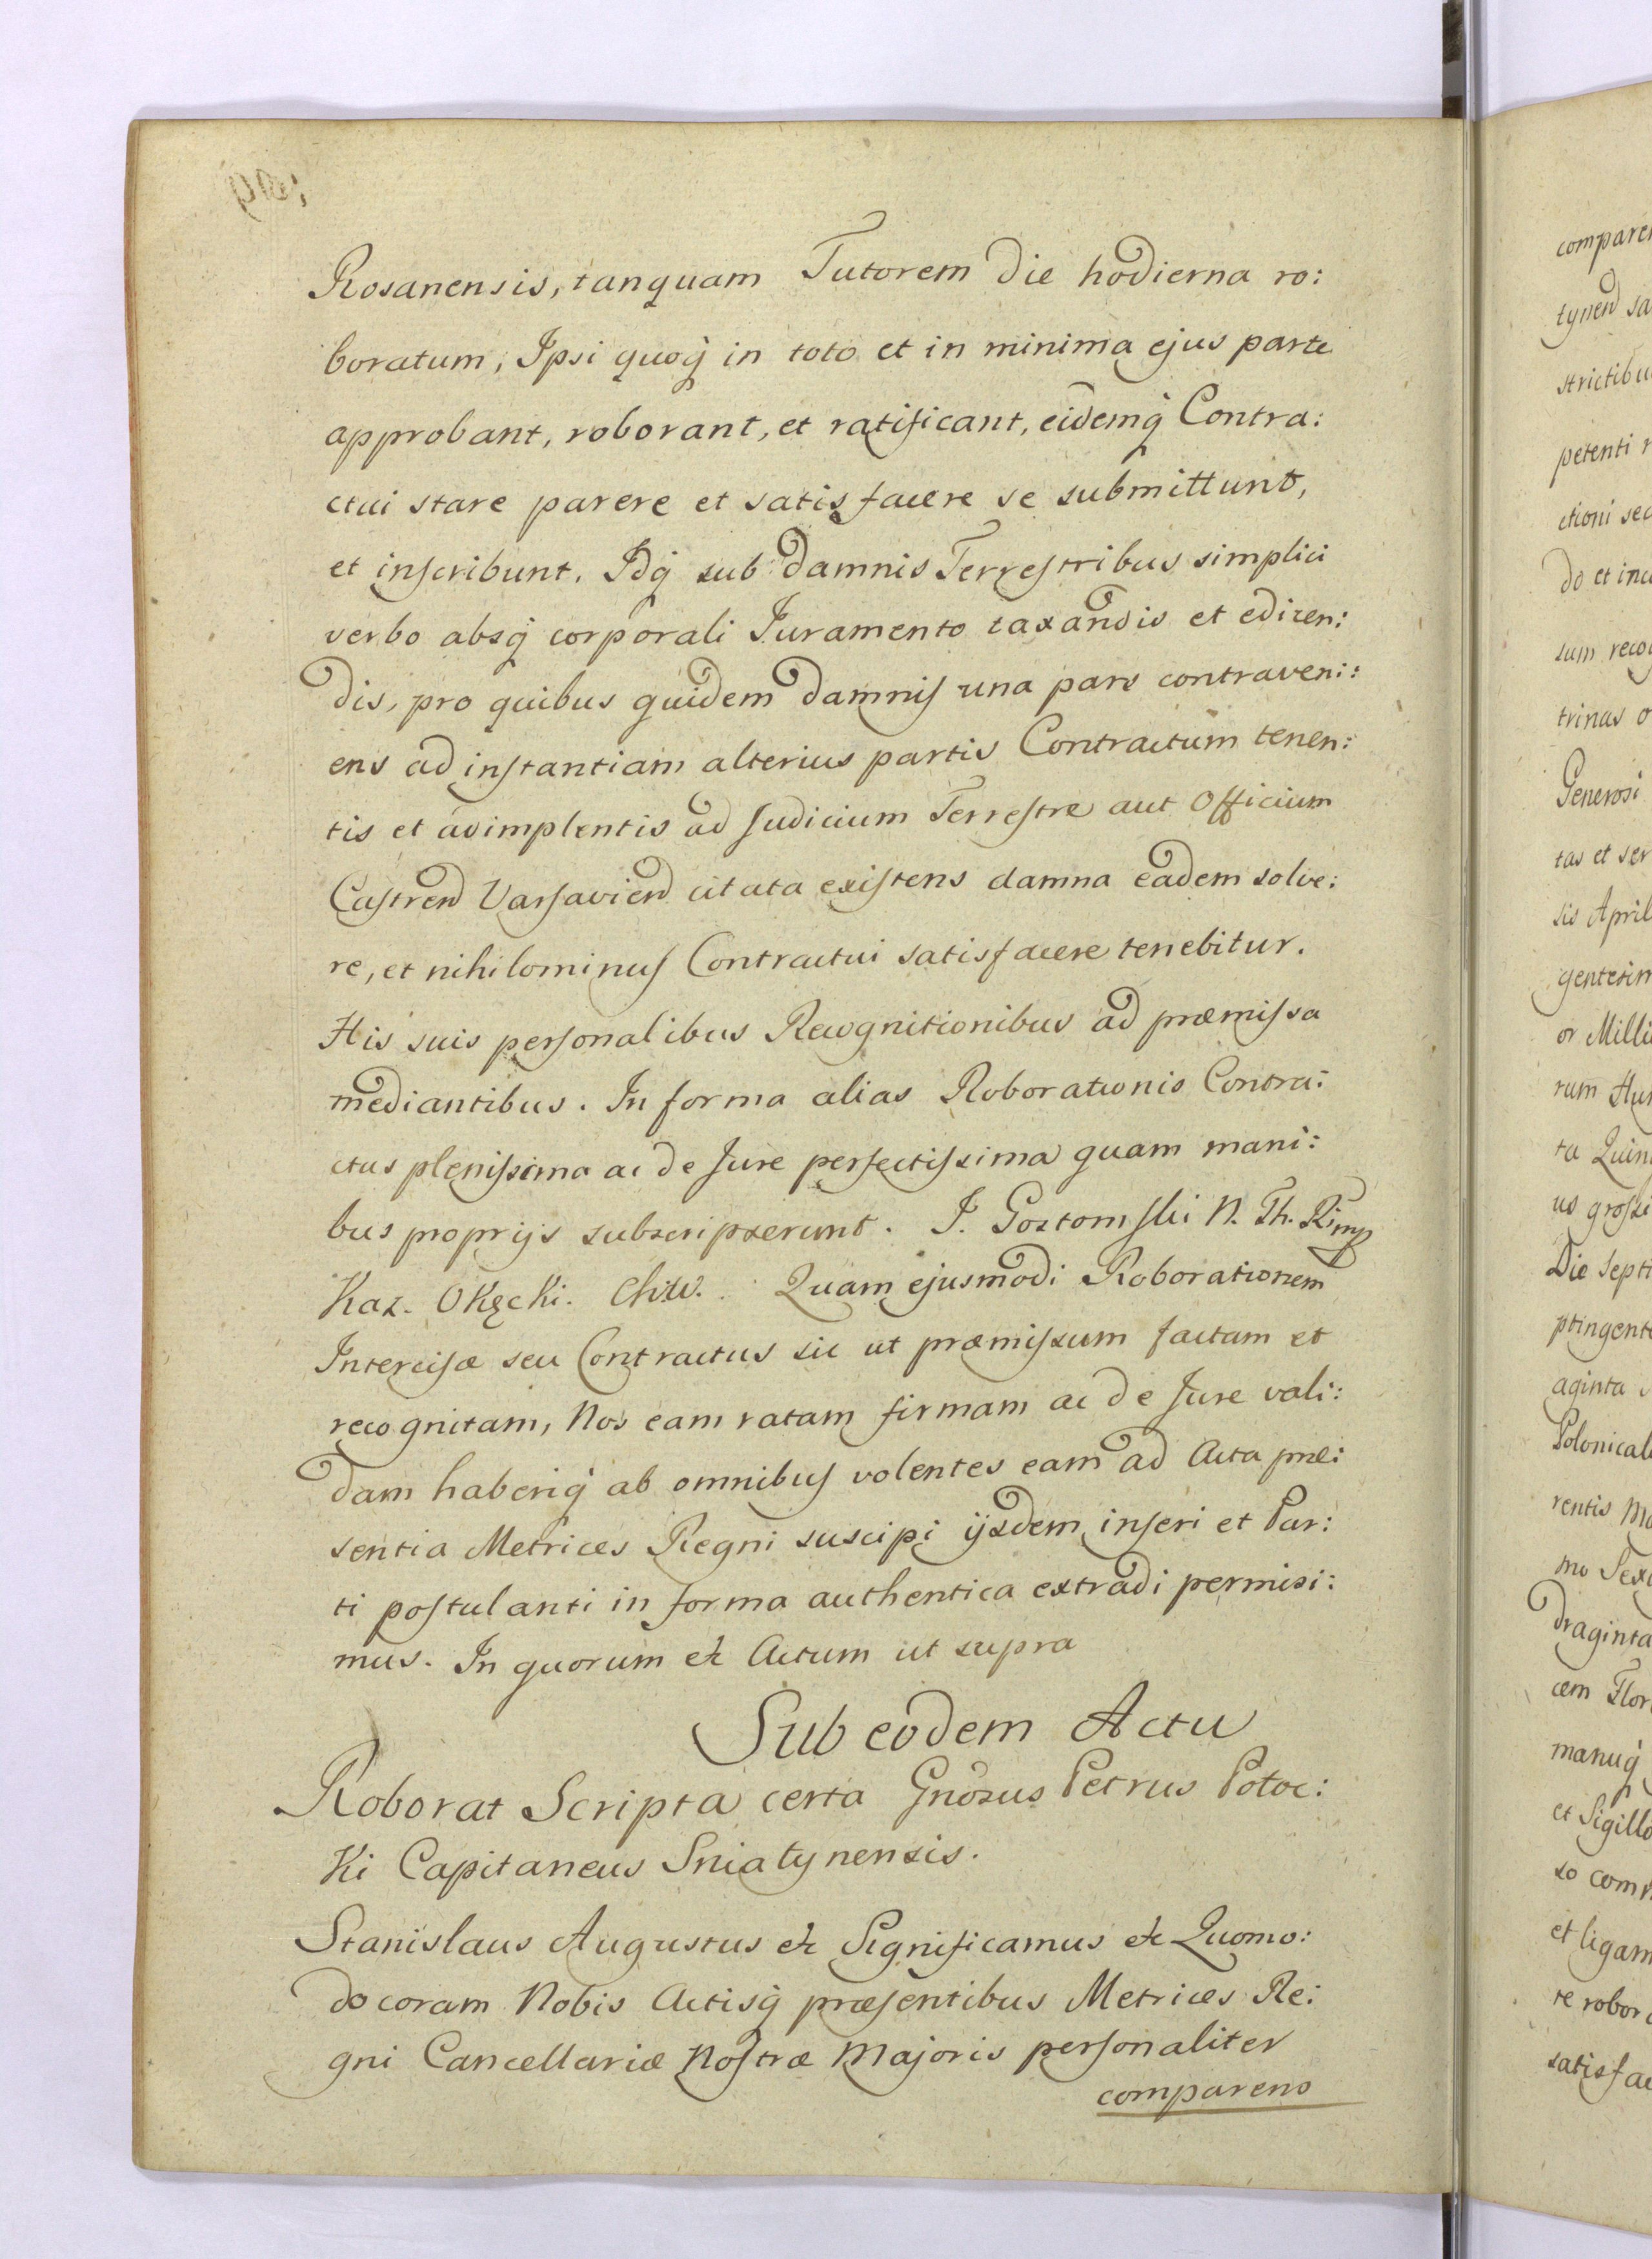 Rosanensis, tanquam Tutorem die hodierna ro:
boratum, Ipsi quoq́ in toto et in minima ejus parte
approbant, roborant, et ratificant, eidemq́ Contra:
ctui stare parere et satisfacere se submittunt,
et inscribunt. Idq́ sub damnis Terrestribus simplici
verbo absq́ corporali Juramento taxandis et edicen:
dis, pro quibus quidem damnis una pars contraveni:
ens ad instantiam alterius partis Contractum tenen:
tis et adimplentis ad Judicium Terrestre aut Officium
Castren Varsavien citata existens damna eadem solve:
re, et nihilominus Contractui satisfacere tenebitur.
His suis personalibus Recognitionibus ad præmissa
mediantibus. In forma alias Roborationis Contra:
ctus plenissima ac de Jure perfectissima quam mani:
bus proprijs subscripserunt. J. Gostomski N. Th.
Kaz. Okęcki. Quam ejusmodi Roborationem
Intercisæ seu Contractus sic ut præmissum factam et
recognitam, Nos eam ratam firmam ac de Jure vali:
dam haberiq́ ab omnibus volentes eam ad Acta præ:
sentia Metrices Regni suscipi ijsdem inseri et Par:
ti postulanti in forma authentica extradi permisi:
mus. In quorum etc Actum ut supra
Sub eodem Actu
Roborat Scripta certa Gnosus Petrus Potoc:
ki Capitaneus Sniatynensis.
Stanislaus Augustus etc Significamus etc Quomo:
do coram Nobis Actisq́ præsentibus Metrices Re:
gni Cancellariæ Nostræ Majoris personaliter
comparens